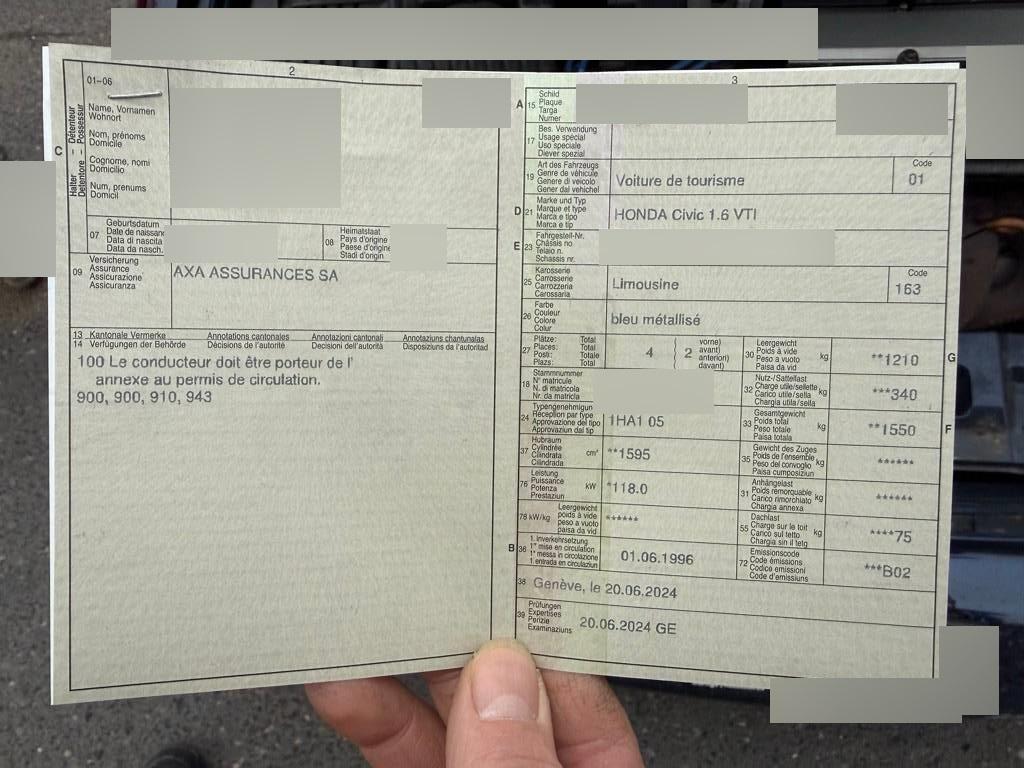 2
01–06
C
Halter – Détenteur
Detentore – Possessur
Name, Vornamen
Wohnort
Nom, prénoms
Domicile
Cognome, nomi
Domicilio
Num, prenums
Domicil
07
Geburtsdatum
Date de naissan
Data di nascita
Data da nasch.
08
Heimatstaat
Pays d'origine
Paese d'origine
Stadi d'origin
09
Versicherung
Assurance
Assicurazione
Assicuranza
AXA ASSURANCES SA
13 Kantonale Vermerke Annotations cantonales Annotazioni cantonali Annotaziuns chantunalas
14 Verfügungen der Behörde Décisions de l'autorité Decisioni dell'autorità Disposiziuns da l'autoritad
100 Le conducteur doit être porteur de l'
annexe au permis de circulation.
900, 900, 910, 943
3
A 15
Schild
Plaque
Targa
Numer
17
Bes. Verwendung
Usage spécial
Uso speciale
Diever spezial
19
Art des Fahrzeugs
Genre de véhicule
Genere di veicolo
Gener dal vehichel
Voiture de tourisme
Code
01
D 21
Marke und Typ
Marque et type
Marca e tipo
Marca e tip
HONDA Civic 1.6 VTI
E 23
Fahrgestell-Nr.
Châssis no
Telaio n.
Schassis nr.
25
Karosserie
Carrosserie
Carrozzeria
Carossaria
Limousine
Code
163
26
Farbe
Couleur
Colore
Colur
bleu métallisé
27
Plätze: Total
Places: Total
Posti: Totale
Plazs: Total
4
2
vorne)
avant)
anteriori)
davant)
30
Leergewicht
Poids à vide
Peso a vuoto
Paisa da vid
kg
**1210
G
18
Stammnummer
N° matricule
N. di matricola
Nr. da matricla
32
Nutz-/Sattellast
Charge utile/sellette
Carico utile/sella
Chargia utila/sella
kg
***340
24
Typengenehmigun
Réception par type
Approvazione del tipo
Approvaziun dal tip
1HA1 05
33
Gesamtgewicht
Poids total
Peso totale
Paisa totala
kg
**1550
F
37
Hubraum
Cylindrée
Cilindrata
Cilindrada
cm³
**1595
35
Gewicht des Zuges
Poids de l'ensemble
Peso del convoglio
Paisa cumposiziun
kg
******
76
Leistung
Puissance
Potenza
Prestaziun
kW
*118.0
31
Anhängelast
Poids remorquable
Carico rimorchiato
Chargia annexa
kg
******
78 kW/kg
Leergewicht
poids à vide
peso a vuoto
paisa da vid
******
55
Dachlast
Charge sur le toit
Carico sul tetto
Chargia sin il tetg
kg
****75
B 36
1. Inverkehrsetzung
1re mise en circulation
1a messa in circolazione
1. entrada en circulaziun
01.06.1996
72
Emissionscode
Code émissions
Codice emissioni
Code d'emissiuns
***B02
38 Genève, le 20.06.2024
39
Prüfungen
Expertises
Perizie
Examinaziuns
20.06.2024 GE